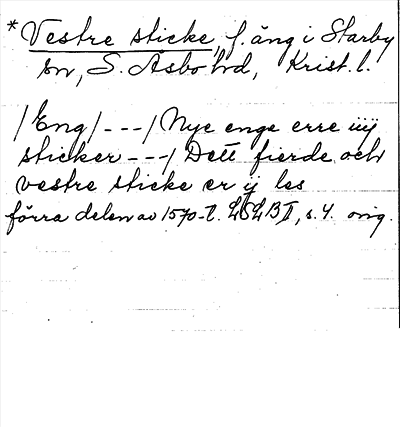 * Vestre sticke, f. äng i Starby
sn, S. Åsbo hd, Krist. l.
/Eng/ - - - / Nye enge erre iiij
sticker - - - / Dett fierde och
vestre sticke er ij les
förra delen av 1570-t. LSLB II, s. 4. orig.